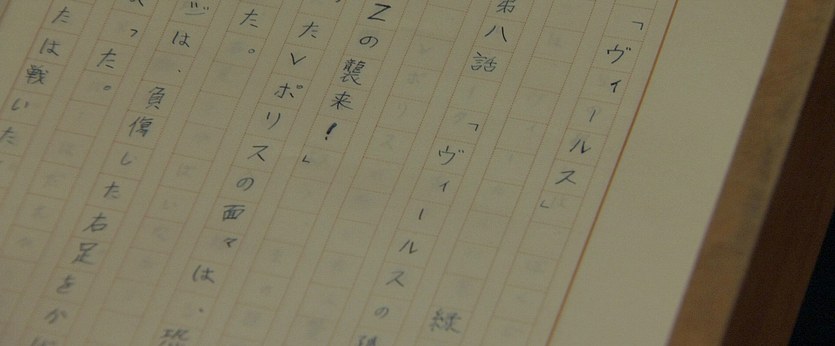 「ヴィールス」
緑
第八話「ヴィールスの
Zの襲来!」
ったVポリスの面々は、恐
た。
ジは、負傷した右足をか
った。
たは戦いた